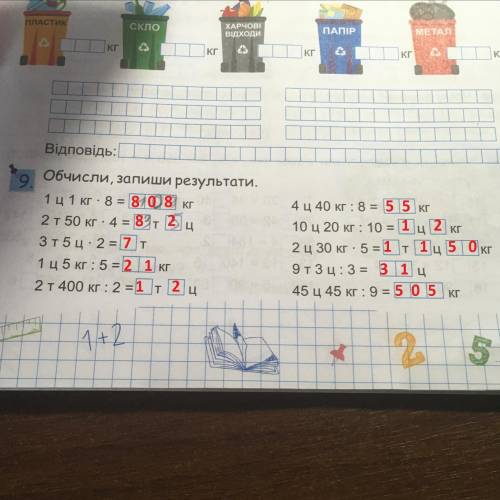 ПЛАСТИК СКЛО ХАРЧОВІ ВІДХОДИ ПАПІР МЕТАЛ
кг кг кг кг к
Відповідь:
9. Обчисли, запиши результати.
1 ц 1 кг · 8 = 808 кг
2 т 50 кг · 4 = 8 т 2 ц
3 т 5 ц · 2 = 7 т
1 ц 5 кг : 5 = 21 кг
2 т 400 кг : 2 = 1 т 2 ц
4 ц 40 кг : 8 = 55 кг
10 ц 20 кг : 10 = 1 ц 2 кг
2 ц 30 кг · 5 = 1 т 1 ц 50 кг
9 т 3 ц : 3 = 31 ц
45 ц 45 кг : 9 = 505 кг
1+2
2 5